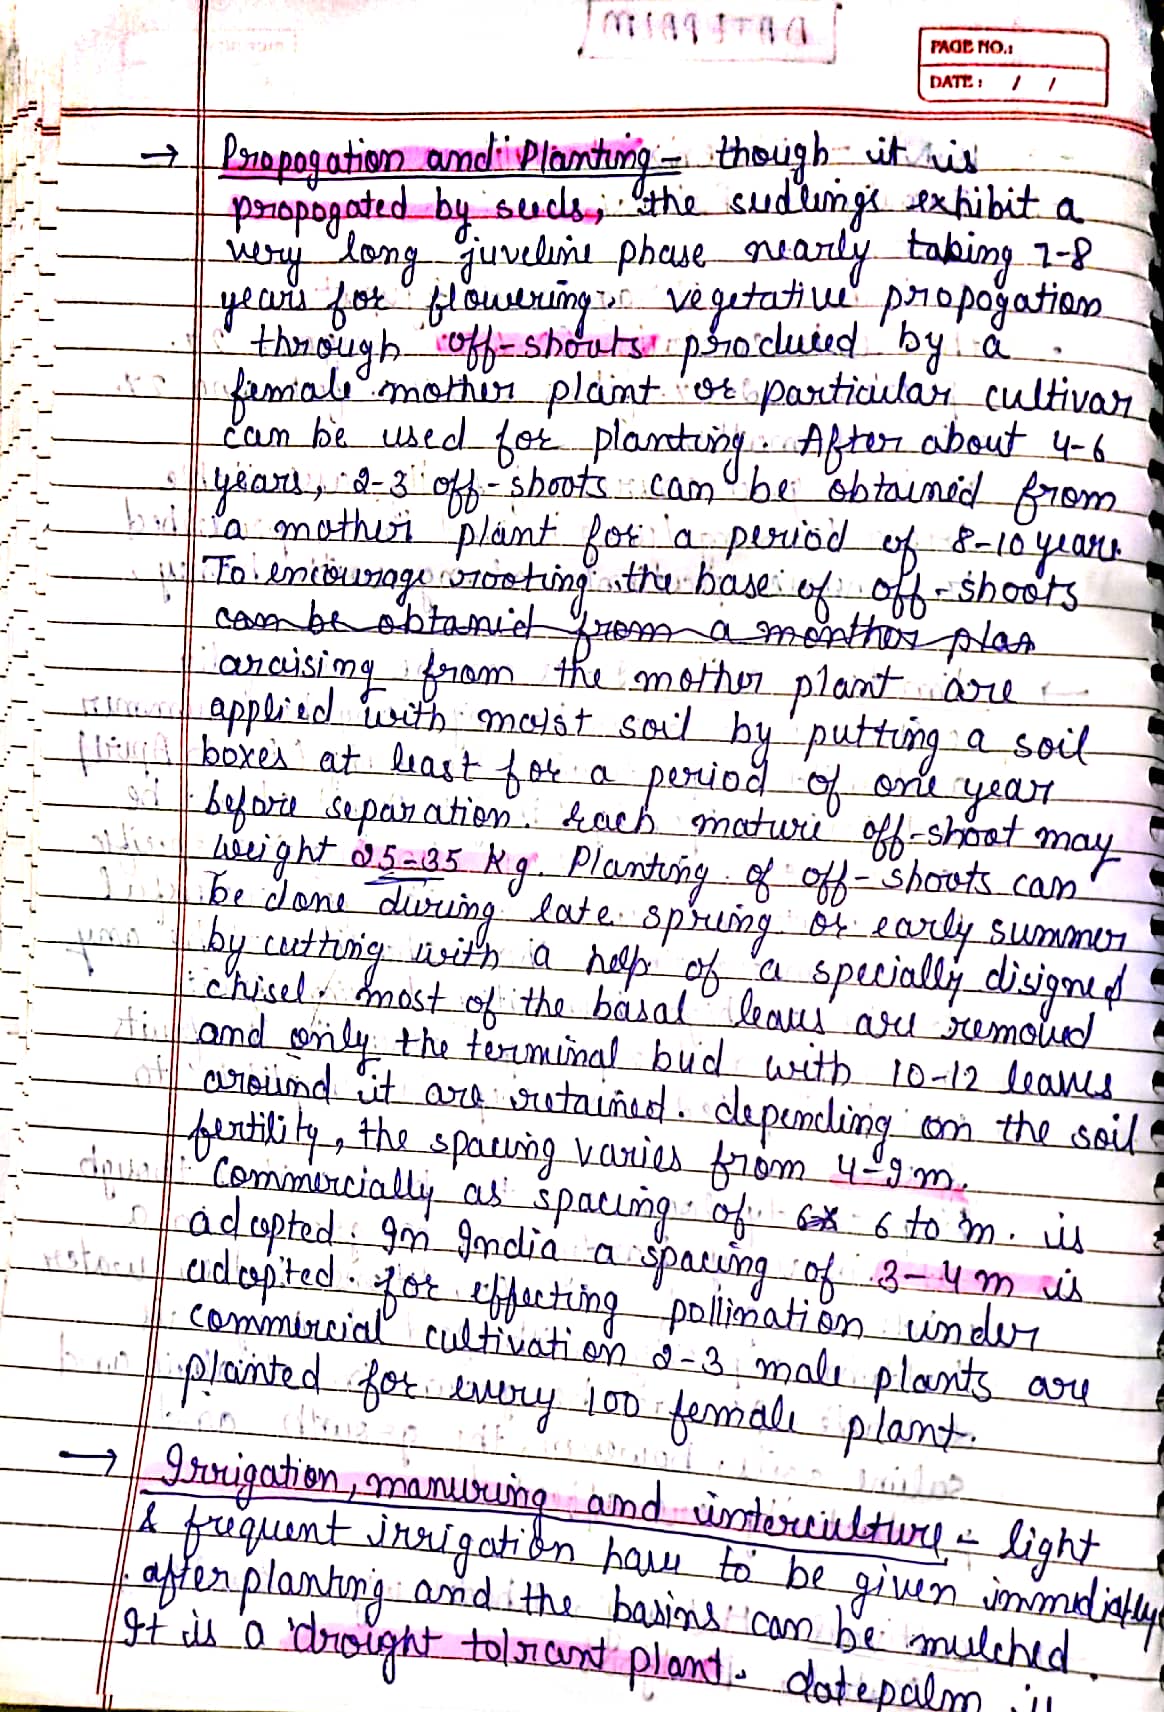 PAGE NO.:
DATE: / /
→ Propogation and Planting - though it is
propogated by seeds, the sudlings exhibit a
very long juveline phase nearly taking 7-8
years for flowering. vegetative propogation
through off-shouts produced by a
female mother plant or particular cultivar
can be used for planting. After about 4-6
years, 2-3 off-shoots can be obtained from
a mother plant for a period of 8-10 years.
To encourage rooting the base of off-shoots
can be obtanid from a monther plan
araising from the mother plant are
applied with moist soil by putting a soil
boxes at least for a period of one year
before separation. Each mature off-shoot may
weight 25-35 Kg. Planting of off-shoots can
be done during late spring or early summer
by cutting with a help of a specially disigned
chisel. most of the basal leaves are removed
and only the terminal bud with 10-12 leaves
around it are retained. depending on the soil
fertility, the spacing varies from 4-9m.
Commercially as spacing of 6 to m. is
adopted. In India a spacing of 3-4m is
adopted. for effecting pollination under
commercial cultivation 2-3 male plants are
planted for every 100 female plant.
→ Irrigation, manuring and interculture - light
& frequent irrigation have to be given immidiatly
after planting and the basins can be mulched.
It is a droight tolrant plant. datepalm is